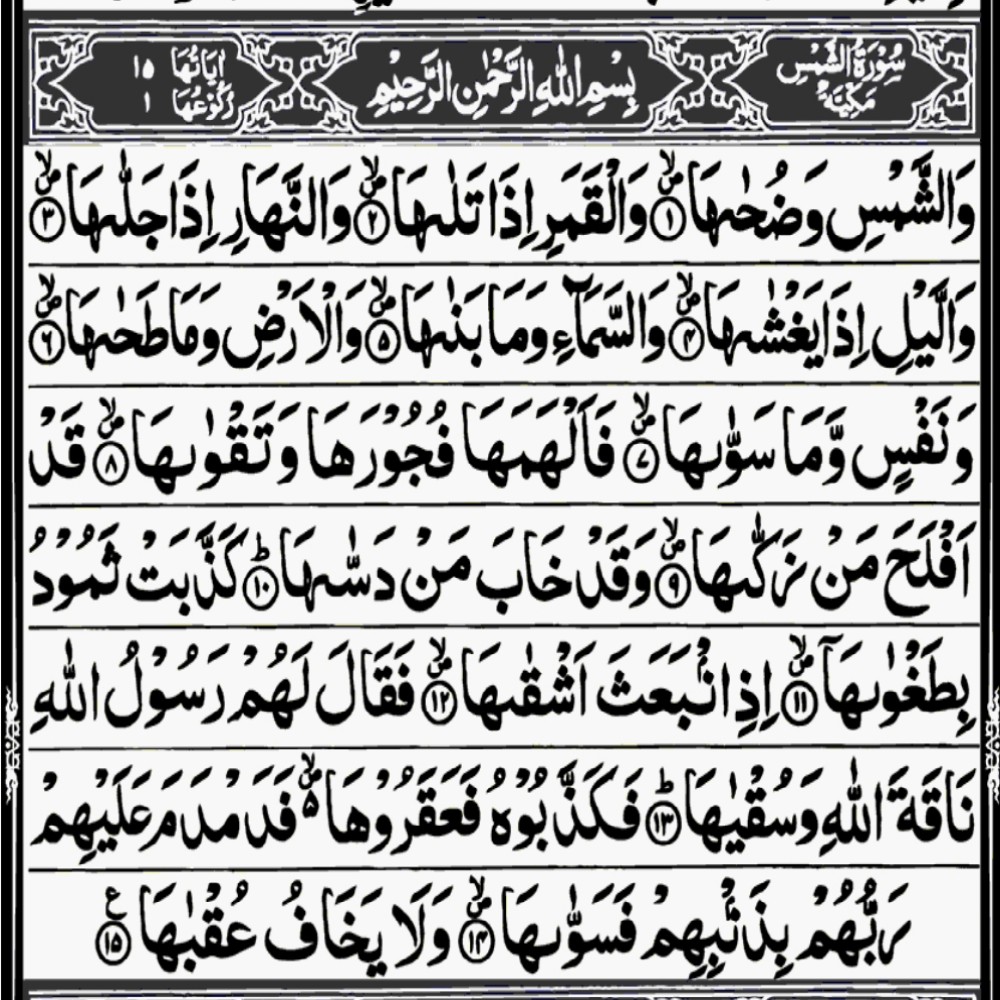 سُوْرَةُ الشَّمْسِ مَكِّيَّةٌ بِسْمِ اللّٰهِ الرَّحْمٰنِ الرَّحِيْمِ اٰيَاتُهَا ١٥ رُكُوْعُهَا ١
وَالشَّمْسِ وَضُحٰىهَا ۙ﴿۱﴾ وَالْقَمَرِ اِذَا تَلٰىهَا ۙ﴿۲﴾ وَالنَّهَارِ اِذَا جَلّٰىهَا ۙ﴿۳﴾
وَالَّيْلِ اِذَا يَغْشٰىهَا ۙ﴿۴﴾ وَالسَّمَآءِ وَمَا بَنٰىهَا ۙ﴿۵﴾ وَالْاَرْضِ وَمَا طَحٰىهَا ۙ﴿۶﴾
وَنَفْسٍ وَّمَا سَوّٰىهَا ۙ﴿۷﴾ فَاَلْهَمَهَا فُجُوْرَهَا وَتَقْوٰىهَا ۙ﴿۸﴾ قَدْ
اَفْلَحَ مَنْ زَكّٰىهَا ۙ﴿۹﴾ وَقَدْ خَابَ مَنْ دَسّٰىهَا ؕ﴿۱۰﴾ كَذَّبَتْ ثَمُوْدُ
بِطَغْوٰىهَاۤ ۙ﴿۱۱﴾ اِذِ انْۢبَعَثَ اَشْقٰىهَا ۙ﴿۱۲﴾ فَقَالَ لَهُمْ رَسُوْلُ اللّٰهِ
نَاقَةَ اللّٰهِ وَسُقْيٰهَا ؕ﴿۱۳﴾ فَكَذَّبُوْهُ فَعَقَرُوْهَا ۙ۵ فَدَمْدَمَ عَلَيْهِمْ
رَبُّهُمْ بِذَنْۢبِهِمْ فَسَوّٰىهَا ۙ﴿۱۴﴾ وَلَا يَخَافُ عُقْبٰهَا ﴿۱۵﴾ ع